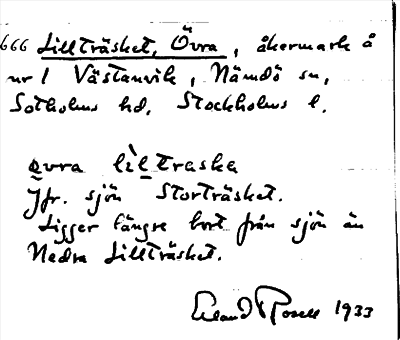 666 Lillträsket, Övra, åkermark å
nr 1 Västanvik, Nämdö sn,
Sotholms hd, Stockholms l.
øvra lìltraska
Jfr. sjön Storträsket.
Ligger längre bort från sjön än
Nedra Lillträsket.
Erland Rosell 1933